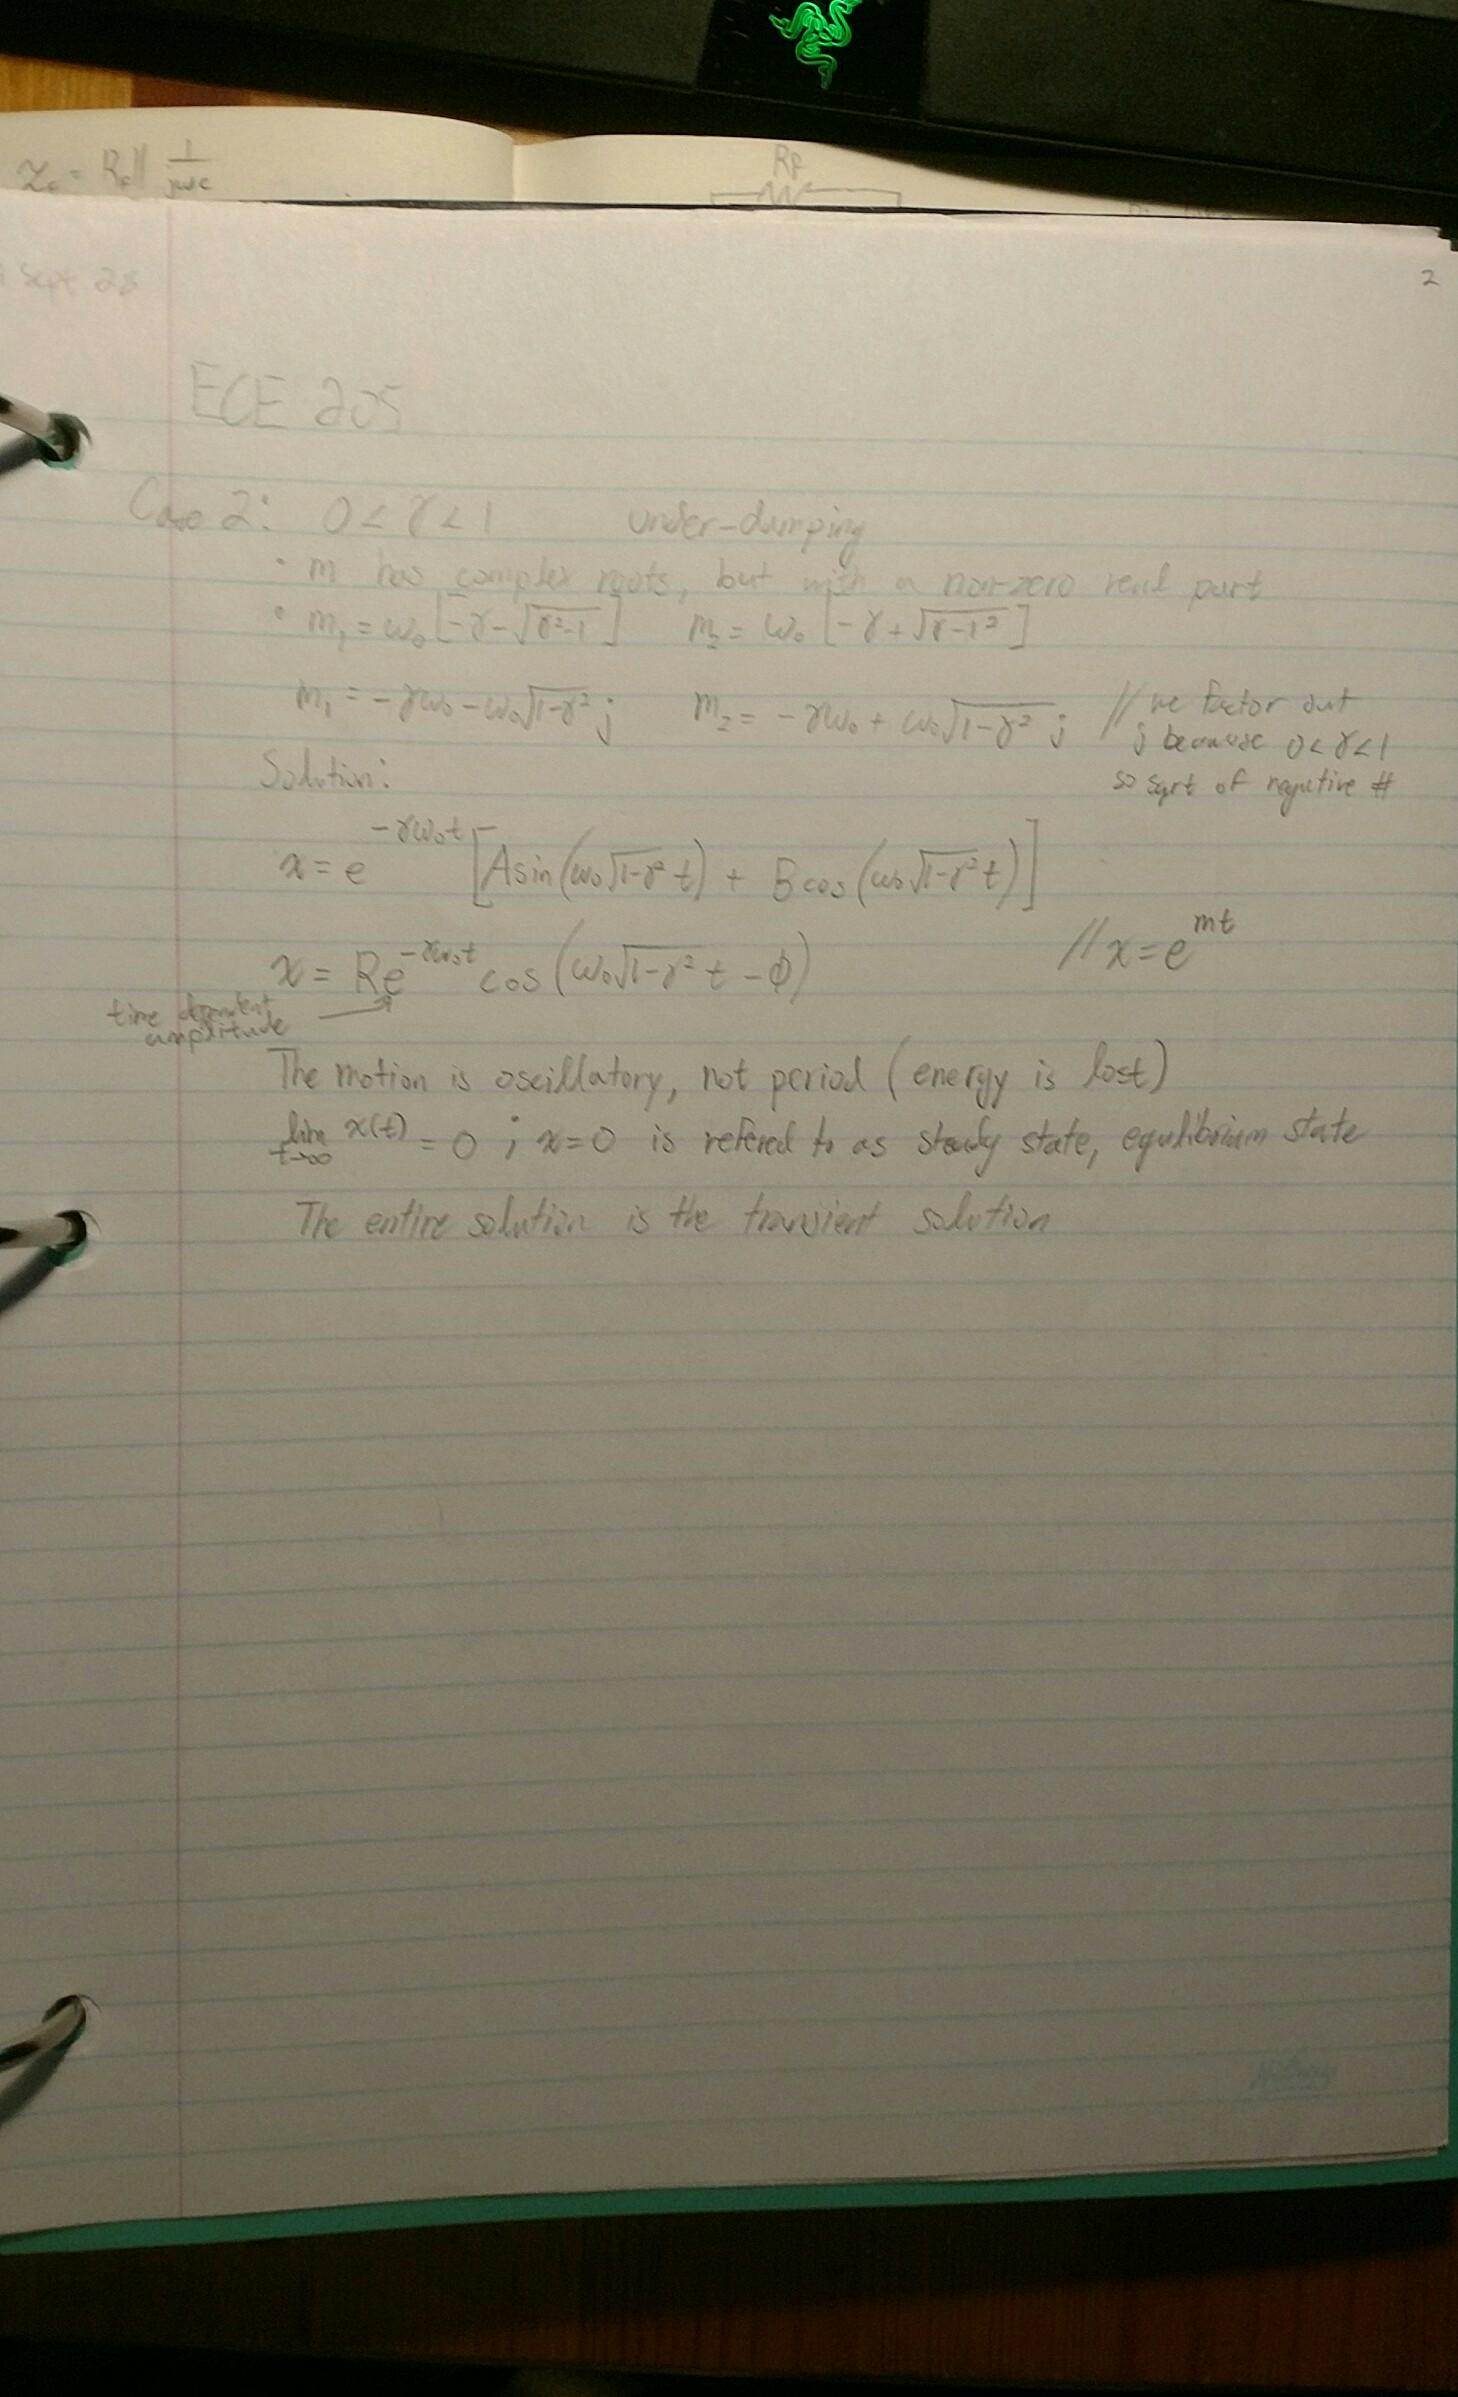 Z_c = R_c || 1/jωc
R_F
Sept 28
2
ECE 205
Case 2: 0 < γ < 1 under-damping
• m has complex roots, but with a non-zero real part
• m₁ = ω₀[-γ-√(γ²-1)] m₂ = ω₀[-γ+√(γ-1²)]
m₁ = -γω₀-ω₀√(1-γ²) j m₂ = -γω₀+ω₀√(1-γ²) j // we factor out
j because 0<γ<1
so sqrt of negative #
Solution:
x = e^(-γω₀t) [Asin(ω₀√(1-γ²) t) + Bcos(ω₀√(1-γ²) t)]
x = Re^(-γω₀t) cos(ω₀√(1-γ²) t - ϕ) // x = e^(mt)
time dependent
amplitude →
The motion is oscillatory, not period (energy is lost)
lim t→∞ x(t) = 0 ; x=0 is refered to as steady state, equilibrium state
The entire solution is the transient solution